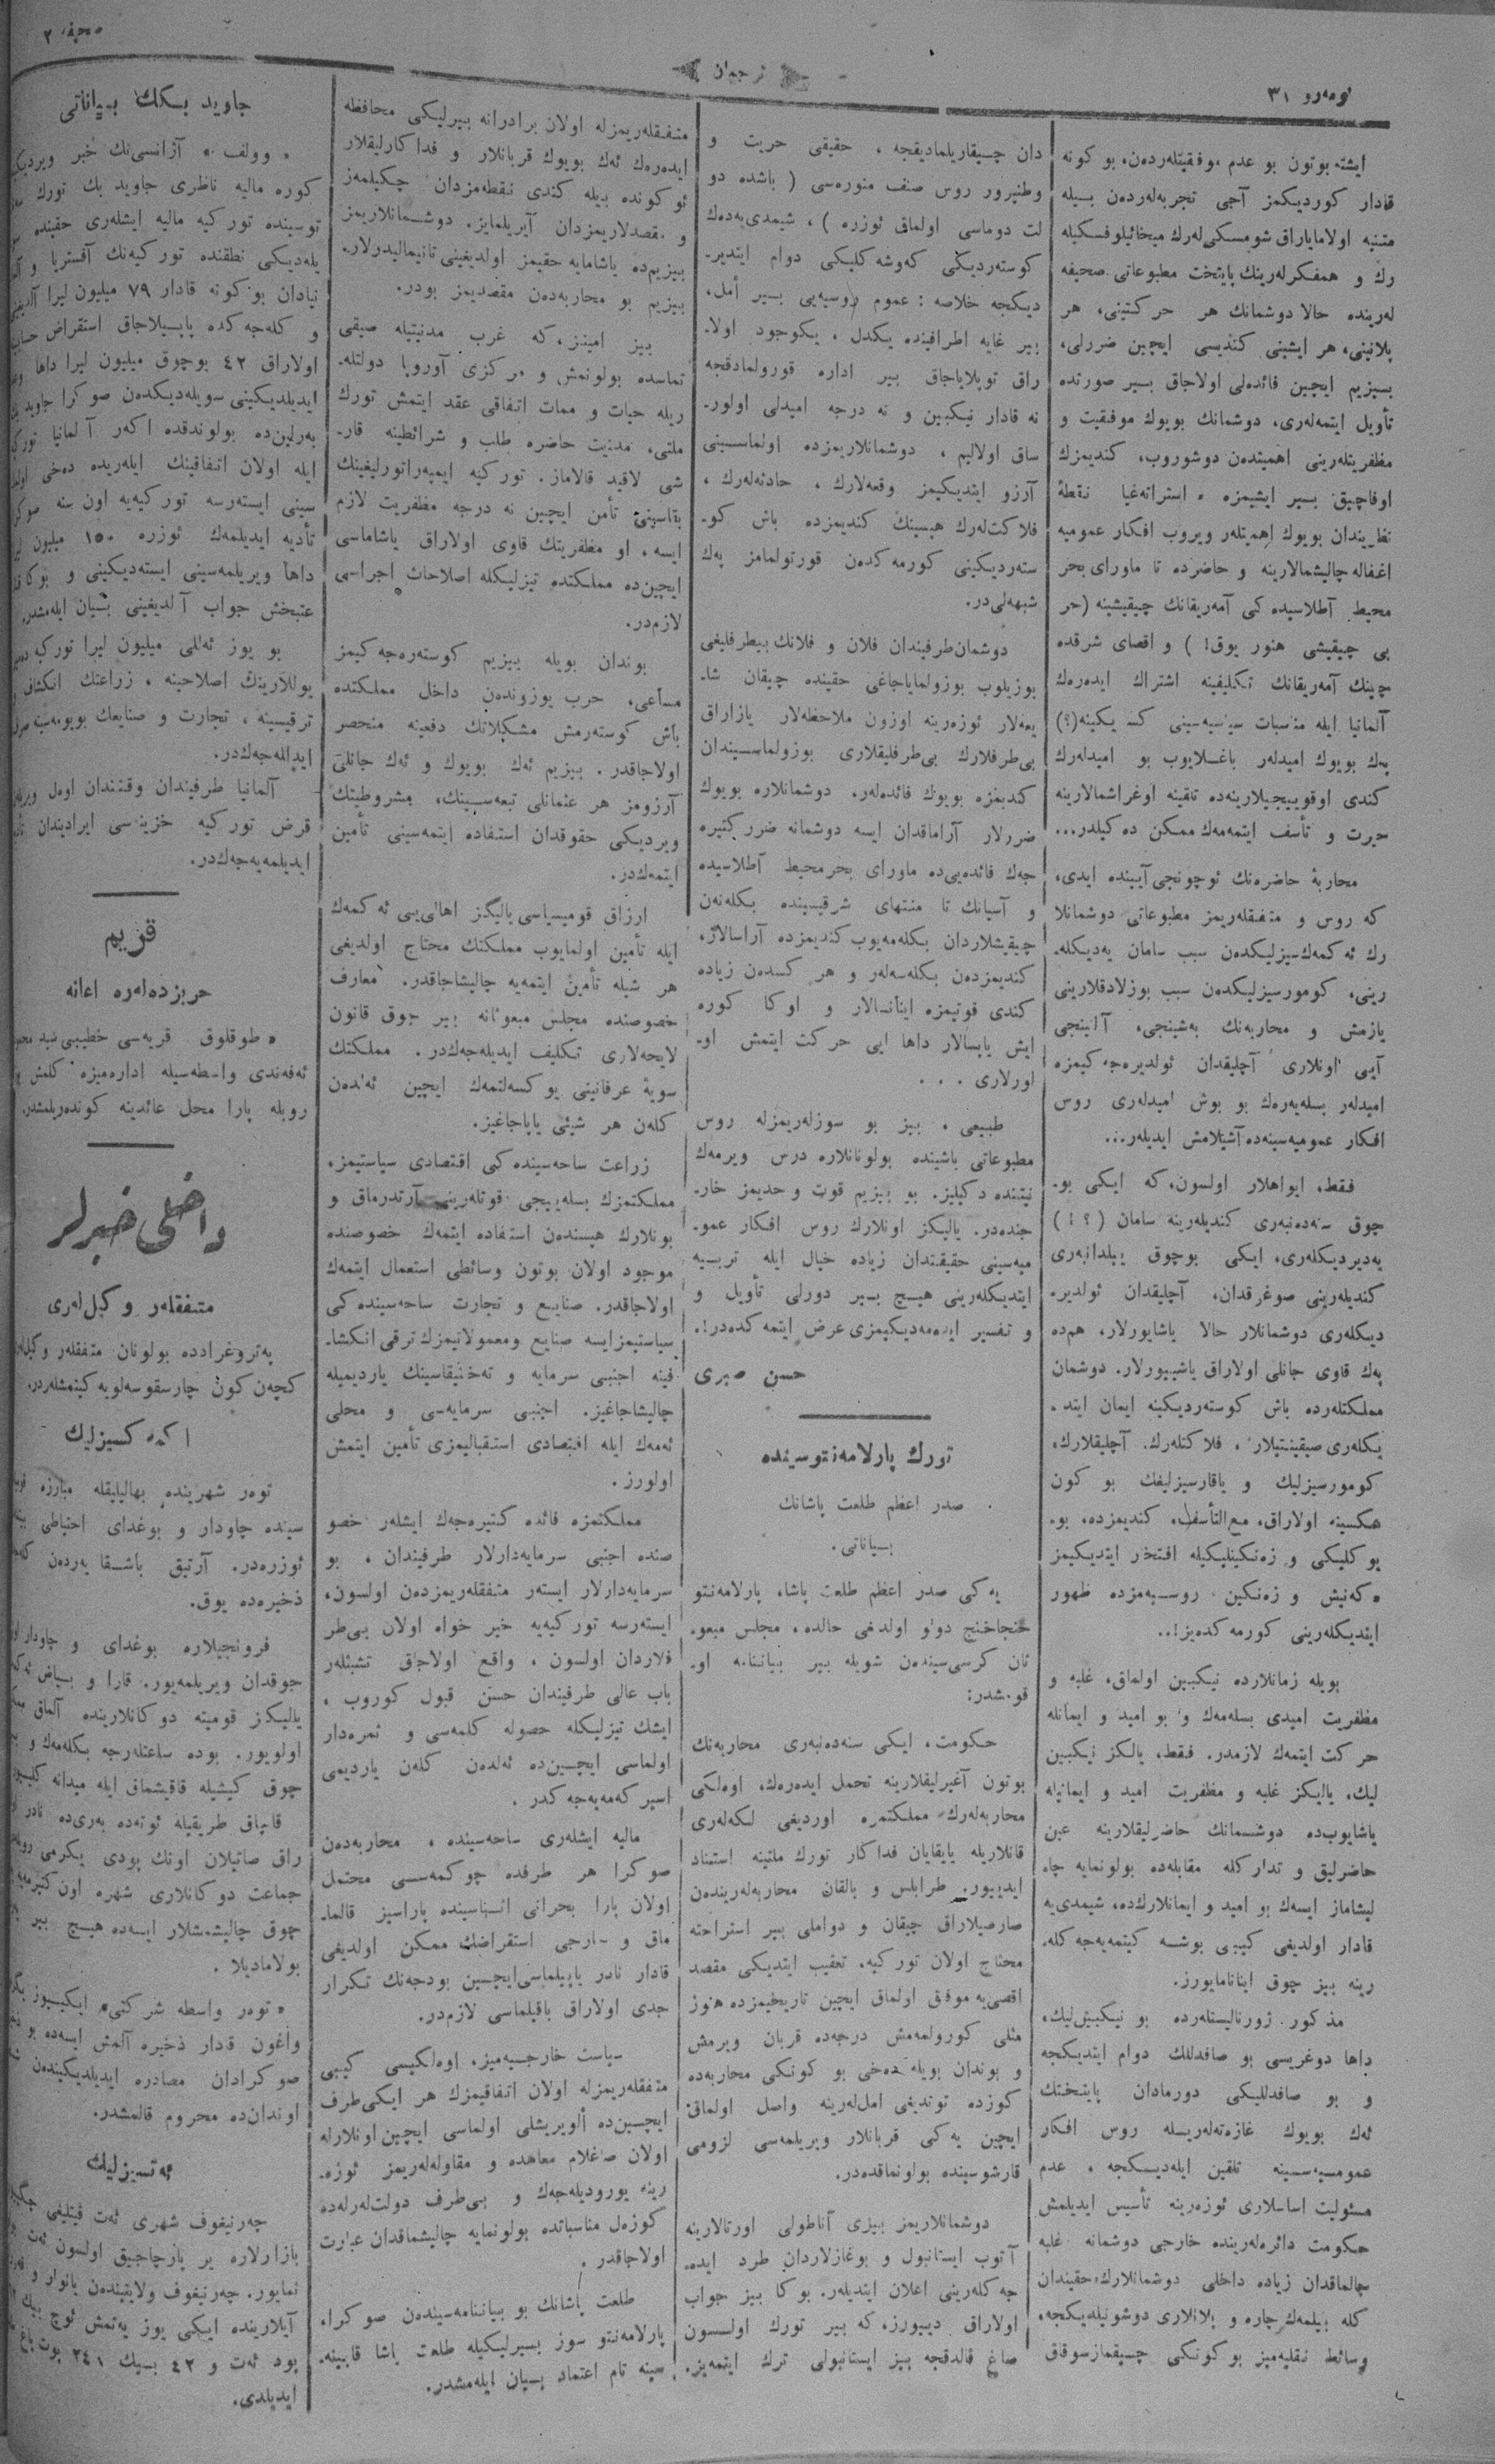 نومه‌رو ٣١
ترجمان
صحیفه ٢
ایشته بوتون بو عدم موفقیتله‌ردن، بو کونه
قادار کوردیکمز آجی تجربه‌له‌ردن بیله
متنبه اولامایاراق شومسکی‌له‌رك میخائیلوفسکیله
رك و همفکرله‌رینك پایتخت مطبوعاتی صحیفه
له‌رینده حالا دوشمانك هر حرکتینی، هر
پلانینی، هر ایشینی کندیسی ایچین ضررلی،
بیزیم ایچین فائده‌لی اولاجاق بیر صورتده
تأویل ایتمه‌له‌ری، دوشمانك بویوك موفقیت و
مظفریتله‌رینی اهمیتدن دوشوروب، کندیمزك
اوفاجیق بیر ایشیمزه استراته‌غیا نقطۀ
نظریندان بویوك اهمیتله‌ر ویروب افکار عمومیه
اغفاله چالیشمالارینه و حاضرده تا ماورای بحر
محیط آطلاسیده کی آمه‌ریقانك چیقیشینه (حر
بی چیقیشی هنور یوق!) و اقصای شرقده
چینك آمه‌ریقانك تکلیفینه اشتراك ایده‌رك
آلمانیا ایله مناسبات سیاسیه‌سینی که‌سیکینه(؟)
په‌ك بویوك امیدله‌ر باغلایوب بو امیدله‌رك
کندی اوقوییجیلارینه‌ده تلقینه اوغراشمالارینه
حیرت و تأسف ایتمه‌مه‌ك ممکن ده‌کیلدر...
محاربۀ حاضره‌نك ئوچونجی آیینده ایدی،
که روس و متفقله‌ریمز مطبوعاتی دوشمانلا
رك ئه‌کمه‌ك‌سیزلیکدن سبب سامان یه‌دیکله‌
رینی، کومورسیزلیکدن سبب بوزلادقلارینی
یازمش و محاربه‌نك به‌شینجی، آلتینجی
آیی اونلاری آچلیقدان ئولدیره‌جه‌کیمزه
امیدله‌ر بسله‌یه‌رك بو بوش امیدله‌ری روس
افکار عمومیه‌سینه‌ده آشیلامش ایدیله‌ر...
فقط، ایواهلار اولسون، که ایکی بو‌
چوق سنه‌دنبه‌ری کندیله‌رینه سامان (؟!)
یه‌دیردیکله‌ری، ایکی بوچوق ییلدانبه‌ری
کندیله‌رینی صوغوقدان، آچلیقدان ئولدیر‌
دیکله‌ری دوشمانلار حالا یاشایورلار، هم‌ده
په‌ك قاوی جانلی اولاراق یاشییورلار. دوشمان
مملکتله‌رده باش کوسته‌ردیکینه ایمان ایتد‌
یکله‌ری صیقینتیلار، فلاکتله‌رك، آچلیقلارك،
کومورسیزلیك و یاقارسیزلیقك بو کون
عکسینه اولاراق، مع‌التأسف، کندیمزده، بو‌
یوکلیکی و زه‌نکینلیکیله افتخار ایتدیکیمز
که‌نیش و زه‌نکین روسیه‌مزده ظهور
ایتدیکله‌رینی کورمه‌کده‌یز!..
بویله زمانلارده نیکبین اولماق، غلبه و
مظفریت امیدی بسله‌مه‌ك و بو امید و ایمانله
حرکت ایتمه‌ك لازمدر. فقط، یالکز نیکبین
لیك، یالیکز غلبه و مظفریت امید و ایمانیله
یاشایوب‌ده دوشمانك حاضرلیقلارینه عین
حاضرلیق و تدارکله مقابله‌ده بولونمایه چا‌
لیشاماز ایسه‌ك بو امید و ایمانلارك‌ده، شیمدی‌یه
قادار اولدیغی کیبی بوشه کیتمه‌یه‌جه‌کله‌
رینه بیز چوق اینانامایورز.
مذکور ژورنالیستله‌رده بو نیکبین‌لیك،
داها دوغریسی بو صافدللك دوام ایتدیکجه
و بو صافدللیکی دورمادان پایتختك
ئه‌ك بویوك غازه‌ته‌له‌ریسله روس افکار
عمومیه‌سینه تلقین ایله‌دیکجه، عدم
مسئولیت اساسلاری ئوزه‌رینه تأسیس ایدیلمش
حکومت دائره‌له‌رینده خارجی دوشمانه غلبه
چالماقدان زیاده داخلی دوشمانلارك حقیندان
کله بیلمه‌ك چاره و پلانلاری دوشونیله‌یکجه،
وسائط نقلیه‌میز بو کونکی چیقمازسوقاق
دان چیقاریلمادیقجه، حقیقی حریت و
وطنپرور روس صنف منوره‌سی (باشده دو
لت دوماسی اولماق ئوزره)، شیمدی‌یه‌دك
کوسته‌ردیکی که‌وشه‌کلیکی دوام ایتدیر‌
دیکجه خلاصه: عموم روسیه‌یی بیر أمل،
بیر غایه اطرافینده یکدل، یکوجود اولا‌
راق توپلایاجاق بیر اداره قورولمادقجه
نه قادار نیکبین و نه درجه امیدلی اولور‌
ساق اولالیم، دوشمانلاریمزده اولماسینی
آرزو ایتدیکیمز وقعه‌لارك، حادثه‌له‌رك،
فلاکت‌له‌رك هپسینك کندیمزده باش کو‌
سته‌ردیکینی کورمه‌کدن قورتولمامز په‌ك
شبهه‌لی‌در.
دوشمان‌طرفیندان فلان و فلانك بیطرفلیغی
بوزیلوب بوزولمایاجاغی حقینده چیقان شا‌
یعه‌لار ئوزه‌رینه اوزون ملاحظه‌لار یازاراق
بی‌طرفلارك بی‌طرفلیقلاری بوزولماسیندان
کندیمزه بویوك فائده‌له‌ر، دوشمانلاره بویوك
ضررلار آراماقدان ایسه دوشمانه ضرر کتیره
جه‌ك فائده‌یی‌ده ماورای بحر محیط آطلاسیده
و آسیانك تا منتهای شرقیسینده بکله‌نه‌ن
چیقیشلاردان بکله‌مه‌یوب کندیمزده آراسالار،
کندیمزدن بکله‌سه‌له‌ر و هر کسدن زیاده
کندی قوتیمزه اینانسالار و اوکا کوره
ایش یاپسالار داها ایی حرکت ایتمش او‌
لورلاری ...
طبیعی، بیز بو سوزله‌ریمزله روس
مطبوعاتی باشینده بولونانلاره درس ویرمه‌ك
نیتنده دکیلیز. بو بیزیم قوت و حدیمز خار‌
جنده‌در. یالیکز اونلارك روس افکار عمو‌
میه‌سینی حقیقتدان زیاده خیال ایله تربیه
ایتدیکله‌رینی هیچ بیر دورلی تأویل و
و تفسیر ایده‌مه‌دیکیمزی عرض ایتمه‌کده‌در!.
حسن صبری
تورك پارلامه‌نتوسینده
صدر اعظم طلعت پاشانك
بیاناتی.
یه‌کی صدر اعظم طلعت پاشا، پارلامه‌نتو
خنجاخنج دولو اولدغی حالده، مجلس مبعو‌
ثان کرسی‌سیندن شویله بیر بیاننامه او‌
قومشدر:
حکومت، ایکی سنه‌دنبه‌ری محاربه‌نك
بوتون آغیرلیقلارینه تحمل ایده‌رك، اوه‌لکی
محاربه‌له‌رك مملکتمزه اوردیغی لکه‌له‌ری
قانلاریله یایقایان فداکار تورك ملتینه استناد
ایدییور. طرابلس و بالقان محاربه‌له‌ریندن
صارصیلاراق چیقان و دواملی بیر استراحته
محتاج اولان تورکیه، تعقیب ایتدیکی مقصد
اقصی‌یه موفق اولماق ایچین تاریخیمزده هنوز
مثلی کورولمه‌مش درجه‌ده قربان ویرمش
و بوندان بویله ده‌خی بو کونکی محاربه‌ده
کوزده توتدیغی امل‌له‌رینه واصل اولماق
ایچین یه‌کی قربانلار ویریلمه‌سی لزومی
قارشوسینده بولونماقده‌در.
دوشمانلاریمز بیزی آناطولی اورتالارینه
آتوب ایستانبول و بوغازلاردان طرد ایده‌
جه‌کله‌رینی اعلان ایتدیله‌ر. بوکا بیز جواب
اولاراق دییورز، که بیر تورك اولسون
صاغ قالدقجه بیز ایستانبولی ترك ایتمه‌یز.
متفقله‌ریمزله اولان برادرانه بیرلیکی محافظه
ایده‌رك ئه‌ك بویوك قربانلار و فداکارلیقلار
ئوکونده بیله کندی نقطه‌مزدان چکیلمه‌ز
و مقصدلاریمزدان آیریلمایز. دوشمانلاریمز
بیزیم‌ده یاشامایه حقیمز اولدیغینی تانیمالیدرلار.
بیزیم بو محاربه‌دن مقصدیمز بودر.
بیز امینز، که غرب مدنیتیله صیقی
تماسده بولونمش و مرکزی آوروپا دولتله‌
ریله حیات و ممات اتفاقی عقد ایتمش تورك
ملتی، مدنیت حاضره طلب و شرائطینه قار‌
شی لاقید قالاماز. تورکیه ایمپه‌راتورلیغینك
بقاسینی تأمن ایچین نه درجه مظفریت لازم
ایسه، او مظفریتك قاوی اولاراق یاشاماسی
ایچین‌ده مملکتده تیزلیکله اصلاحات اجراسی
لازم‌در.
بوندان بویله بیزیم کوستره‌جه‌کیمز
مساعی، حرب یوزوندن داخل مملکتده
باش کوسته‌رمش مشکلاتك دفعینه منحصر
اولاجاقدر. بیزیم ئه‌ك بویوك و ئه‌ك جانلی
آرزومز هر عثمانلی تبعه‌سینك، مشروطیتك
ویردیکی حقوقدان استفاده ایتمه‌سینی تأمین
ایتمه‌ك‌در.
ارزاق قومیسیاسی یالیگز اهالی‌یی ئه‌کمه‌ك
ایله تأمین اولمایوب مملکتك محتاج اولدیغی
هر شیله تأمین ایتمه‌یه چالیشاجاقدر. معارف
خصوصنده مجلس مبعوثانه بیر چوق قانون
لایحه‌لاری تکلیف ایدیله‌جه‌ك‌در. مملکتك
سویۀ عرفانینی یوکسه‌لتمه‌ك ایچین ئه‌لدن
کلن هر شیئی یاپاجاغیز.
زراعت ساحه‌سینده کی اقتصادی سیاستیمز،
مملکتمزك بسله‌ییجی قوتله‌رینی آرتدرماق و
بونلارك هپسندن استفاده ایتمه‌ك خصوصنده
موجود اولان بوتون وسائطی استعمال ایتمه‌ك
اولاجاقدر. صنایع و تجارت ساحه‌سینده کی
سیاستیمزایسه صنایع ومعمولاتیمزك ترقی انکشا‌
فینه اجنبی سرمایه و ته‌خنیقاسینك یاردیمیله
چالیشاجاغیز. اجنبی سرمایه‌سی و محلی
ئه‌مه‌ك ایله اقتصادی استقبالیمزی تأمین ایتمش
اولورز.
مملکتمزه فائده کتیره‌جه‌ك ایشله‌ر خصو
صنده اجنبی سرمایه‌دارلار طرفیندان، بو
سرمایه‌دارلار ایسته‌ر متفقله‌ریمزدن اولسون،
ایسته‌رسه تورکیه‌یه خیر خواه اولان بی‌طر
فلاردان اولسون، واقع اولاجاق تشبثله‌ر
باب عالی طرفیندان حسن قبول کوروب،
ایشك تیزلیکله حصوله کلمه‌سی و ثمره‌دار
اولماسی ایچین‌ده ئه‌لدن کلن یاردیمی
اسیرکه‌مه‌یه‌جه‌کدر.
مالیه ایشله‌ری ساحه‌سینده، محاربه‌دن
صوکرا هر طرفده چوکمه‌سی محتمل
اولان پارا بحرانی اثناسینده پاراسیز قالما‌
ماق و خارجی استقراضك ممکن اولدیغی
قادار نادر یاپیلماسی‌ایچین بودجه‌نك تکرار
جدی اولاراق باقیلماسی لازم‌در.
سیاست خارجیه‌میز، اوه‌لکیسی کیبی
متفقله‌ریمزله اولان اتفاقیمزك هر ایکی‌طرف
ایچین‌ده ألویریشلی اولماسی ایچین اونلارله
اولان صاغلام معاهده و مقاوله‌له‌ریمز ئوزه‌
رینه یورودیله‌جه‌ك و بی‌طرف دولت‌له‌رله‌ده
کوزه‌ل مناسباتده بولونمایه چالیشماقدان عبارت
اولاجاقدر.
طلعت پاشانك بو بیاننامه‌سیندن صوکرا،
پارلامه‌نتو سوز بیرلیکیله طلعت پاشا قابینه‌
سینه تام اعتماد بیان ایله‌مشدر.
جاوید بكك بیاناتی
«وولف» آژانسی‌نك خبر ویردیکینه
کوره مالیه ناظری جاوید بك تورك
توسینده تورکیه مالیه ایشله‌ری حقینده
یله‌دیکی نطقنده تورکیه‌نك آفستریا و
نیادان بو کونه قادار ٧٩ میلیون لیرا
و کله‌جه‌کده یاپیلاجاق استقراض
اولاراق ٤٢ بوچوق میلیون لیرا داها
ایدیلدیکینی سویله‌دیکدن صوکرا جاوید بك
به‌رلین‌ده بولوندقده اکه‌ر آلمانیا
ایله اولان اتفاقینك ایله‌ریده ده‌خی
سینی ایسته‌رسه تورکیه‌یه اون سنه
تأدیه ایدیلمه‌ك ئوزره ١٥٠ میلیون
داها ویریلمه‌سینی ایسته‌دیکینی و بوکا
عتبخش جواب آلدیغینی بیان ایله‌مشدر.
بو یوز ئه‌للی میلیون لیرا تورکیه
یوللارینك اصلاحینه، زراعتك انکشاف
ترقیسینه، تجارت و صنایعك بویومه‌سینه
ایدیله‌جه‌ك‌در.
آلمانیا طرفیندان وقتندان اوه‌ل
قرض تورکیه خزینه‌سی ایرادیندان
ایدیلمه‌یه‌جه‌ك‌در.
قریم
حربزده‌له‌ره اعانه
طوقلوق قریه‌سی خطیبی
ئه‌فه‌ندی واسطه‌سیله اداره‌میزه کلمش
روبله پارا محل عائدینه کونده‌ریلمشدر.
داخلی خبرلر
متفقله‌ر وکیل‌له‌ری
په‌تروغرادده بولونان متفقله‌ر
کچه‌ن کون چارسقوسه‌لویه کیتمشله‌ردر.
اکمه‌کسیزلیك
توه‌ر شهرینده بهالیلیقله مبارزه
سینده چاودار و بوغدای احتیاطی
ئوزره‌در. آرتیق باشقا یه‌ردن
ذخیره‌ده یوق.
فرونجیلاره بوغدای و چاودار
چوقدان ویریلمه‌یور. قارا و بیاض
یالیکز قومیته دوکانلارینده آلماق
اولویور. بوده ساعتله‌رجه بکله‌مه‌ك و
چوق کیشیله قاقیشماق ایله میدانه
قاچاق طریقیله ئوته‌ده به‌ری‌ده نادر
راق صاتیلان اونك پودی یکرمی
جماعت دوکانلاری شهره اون
چوق چالیشمشلار ایسه‌ده هیچ بیر
بولامادیلا.
توه‌ر واسطه شرکتی ایکییوز
واغون قادار ذخیره آلمش ایسه‌ده بو
صوکرادان مصادره ایدیلدیکیندن
اوندان‌ده محروم قالمشدر.
ئه‌تسیزلیك
چه‌رنیغوف شهری ئه‌ت قیتلیغی
بازارلاره بیر پارچاجیق اولسون ئه‌ت
نمایور. چه‌رنیغوف ولایتیندن یانوار و
آیلارینده ایکی یوز یه‌تمش ئوچ بیك
پود ئه‌ت و ٤٢ بیك ٢٤١ پوت یاغ
ایدیلدی.